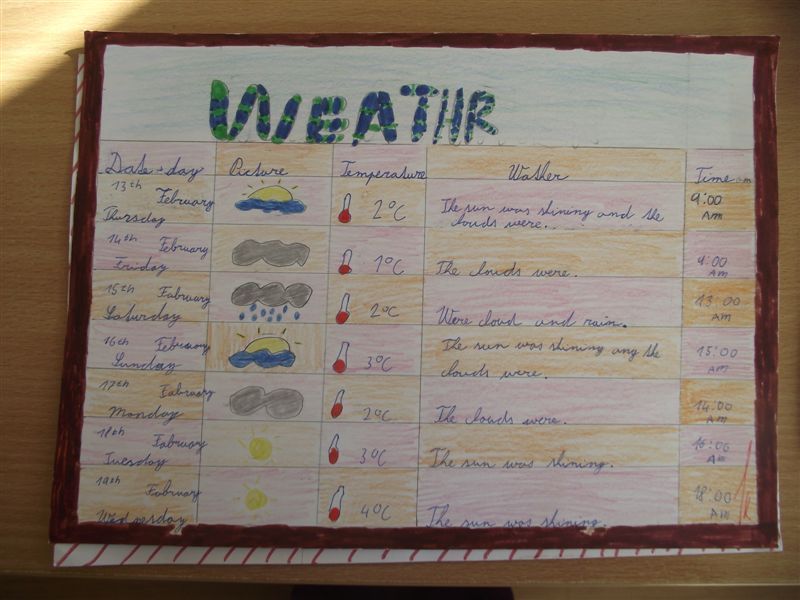 WEATHR
Date + day Picture Temperature Wather Time am
13th February Thursday 2°C The sun was shining and the clouds were. 9:00 Am
14th February Friday 1°C The clouds were. 9:00 Am
15th Fabruary Saturday 2°C Were cloud and rain. 13:00 Am
16th February Sunday 3°C The sun was shining ang the clouds were. 15:00 Am
17th Fabruary Monday 2°C The clouds were. 14:00 Am
18th Fabruary Tuesday 3°C The sun was shining. 16:00 Am
19th Fabruary Wednesday 4°C The sun was shining. 18:00 Am